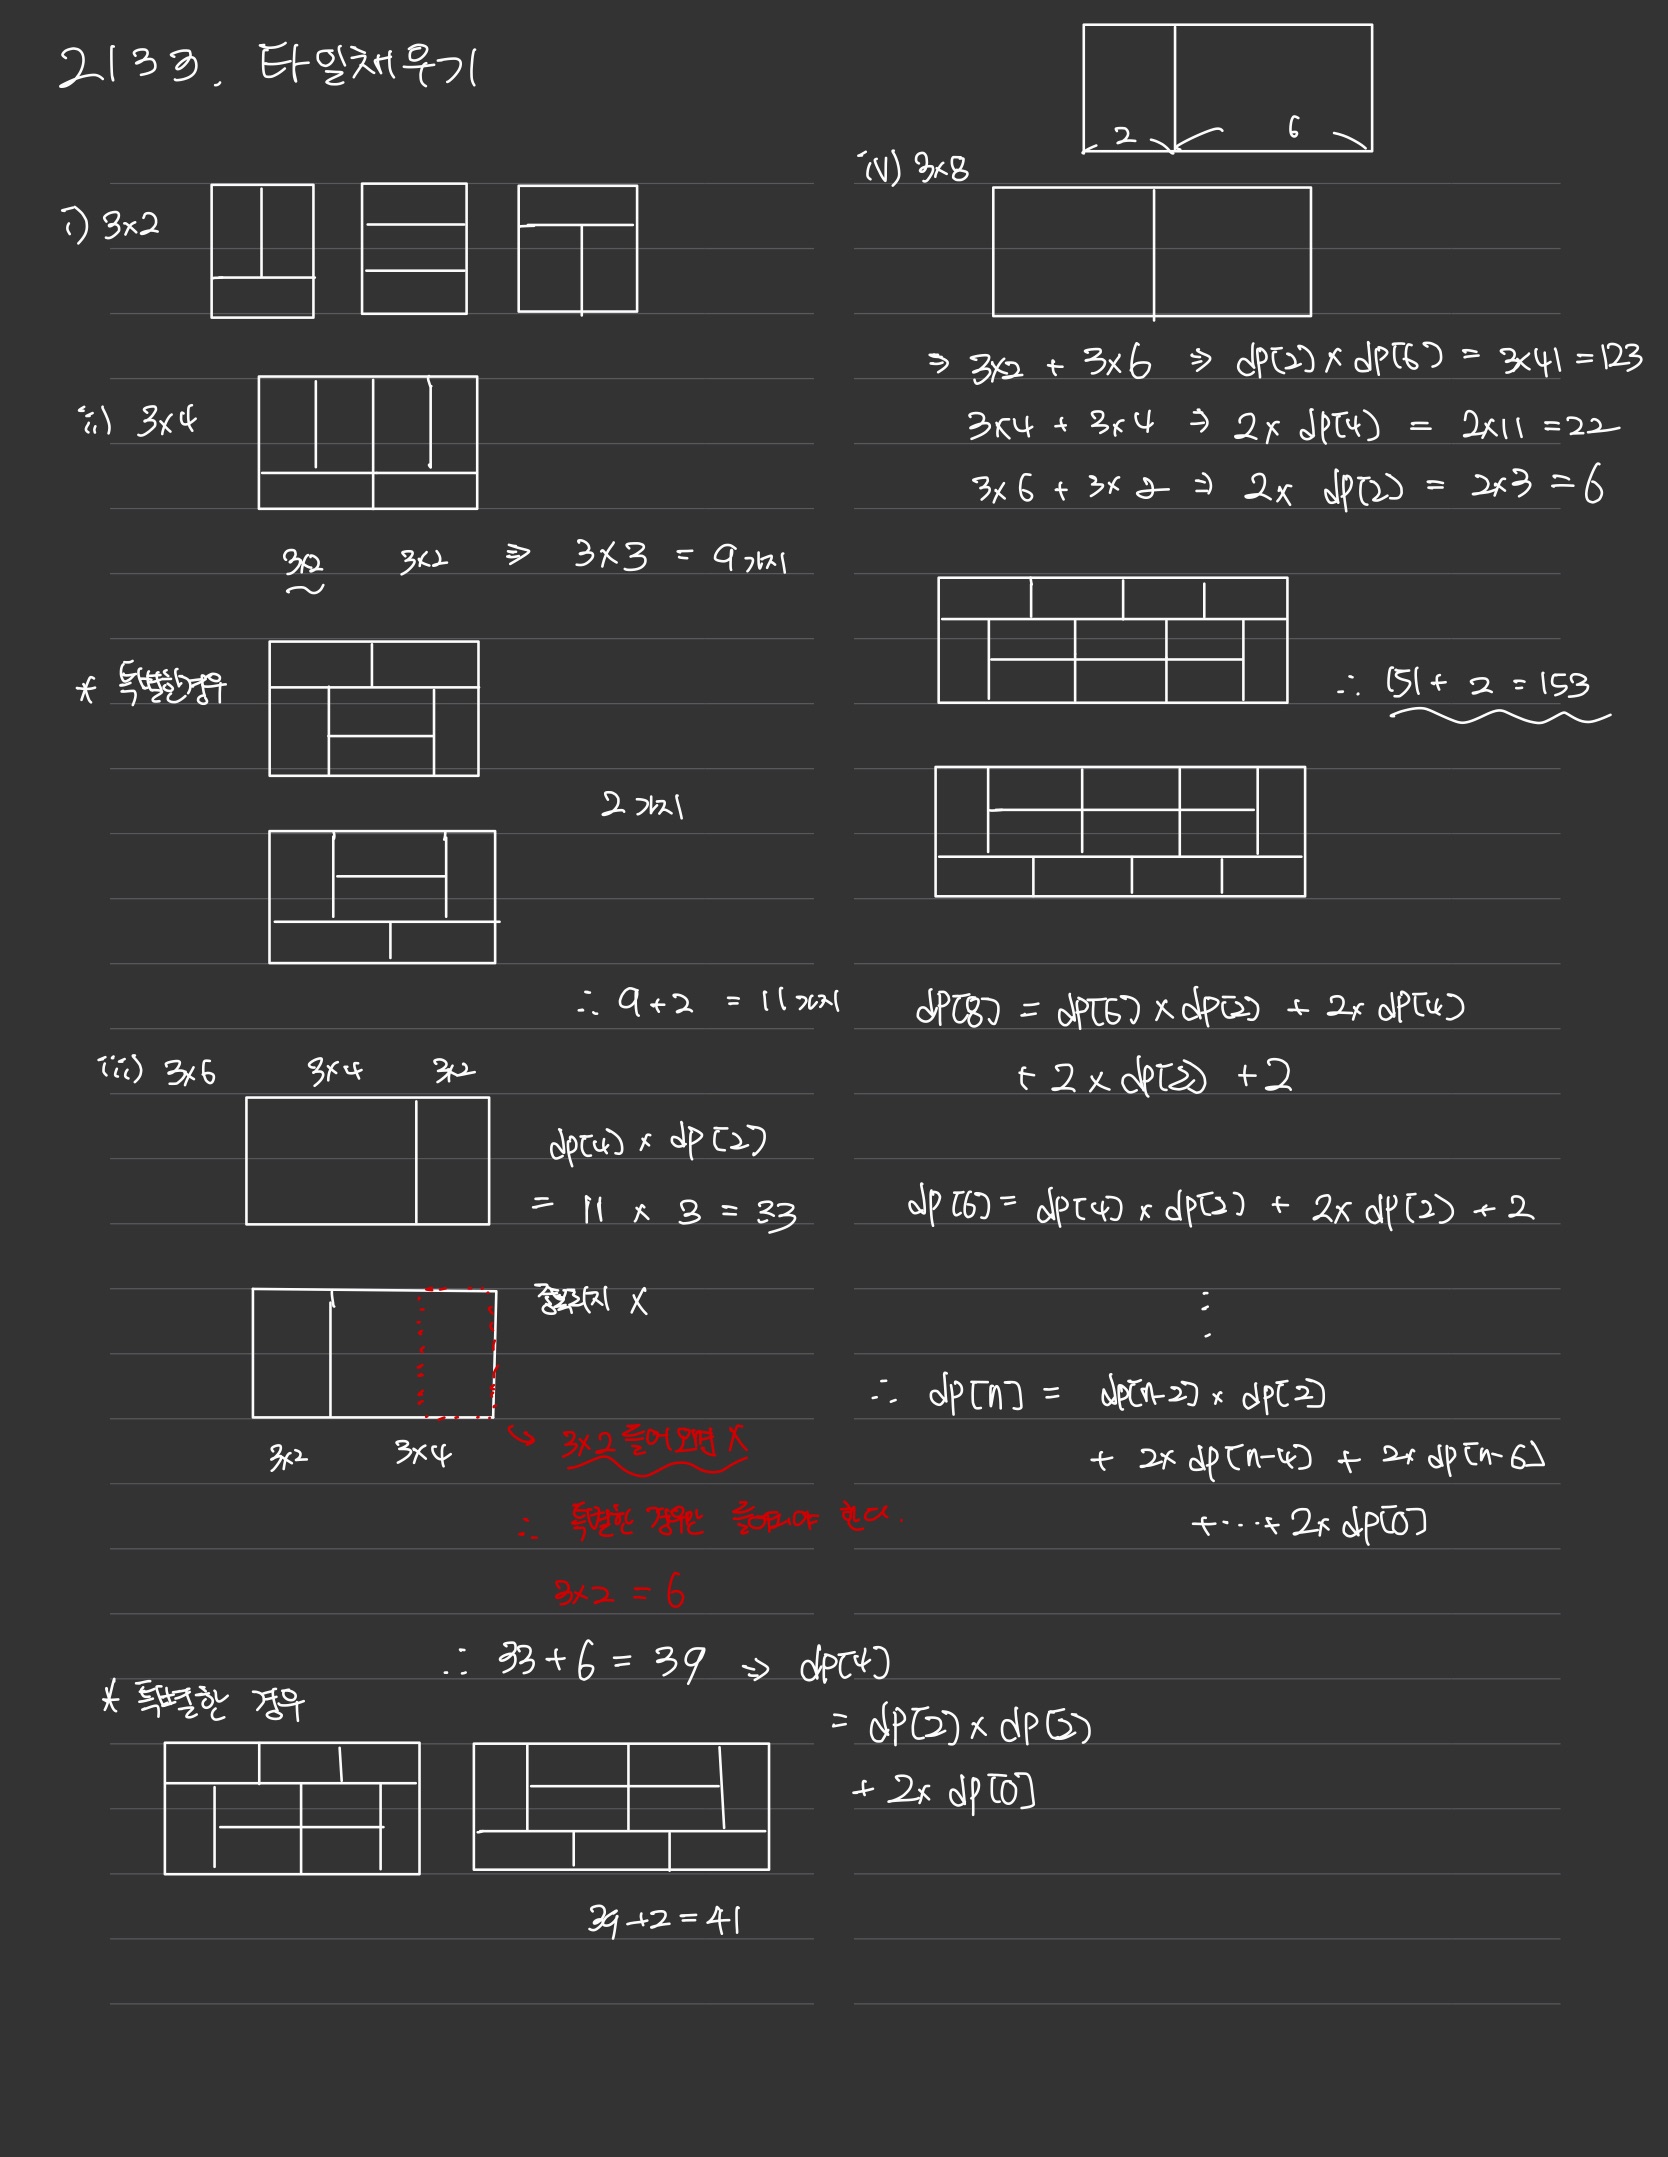 2133. 타일채우기
i) 3x2
ii) 3x4
3x2 3x2 ⇒ 3x3 = 9가지
* 특별한경우
2가지
∴ 9+2 = 11가지
iii) 3x6 3x4 3x2
dp[4] x dp[2]
= 11 x 3 = 33
중복되지 X
3x2 3x4
↪ 3x2 들어오면 X
∴ 특별한 경우만 들어와야 한다.
3x2 = 6
∴ 33+6 = 39 ⇒ dp[4]
= dp[2] x dp[2]
+ 2x dp[0]
* 특별한 경우
39+2=41
2 6
iv) 3x8
⇒ 3x2 + 3x6 ⇒ dp[2] x dp[6] = 3x41 = 123
3x4 + 3x4 ⇒ 2x dp[4] = 2x11 = 22
3x6 + 3x2 ⇒ 2x dp[2] = 2x3 = 6
∴ 151+ 2 = 153
dp[8] = dp[6] x dp[2] + 2x dp[4]
+ 2 x dp[2] +2
dp[6] = dp[4] x dp[2] + 2x dp[2] + 2
∴ dp[n] = dp[n-2] x dp[2]
+ 2x dp[n-4] + 2x dp[n-6]
+···+ 2x dp[0]